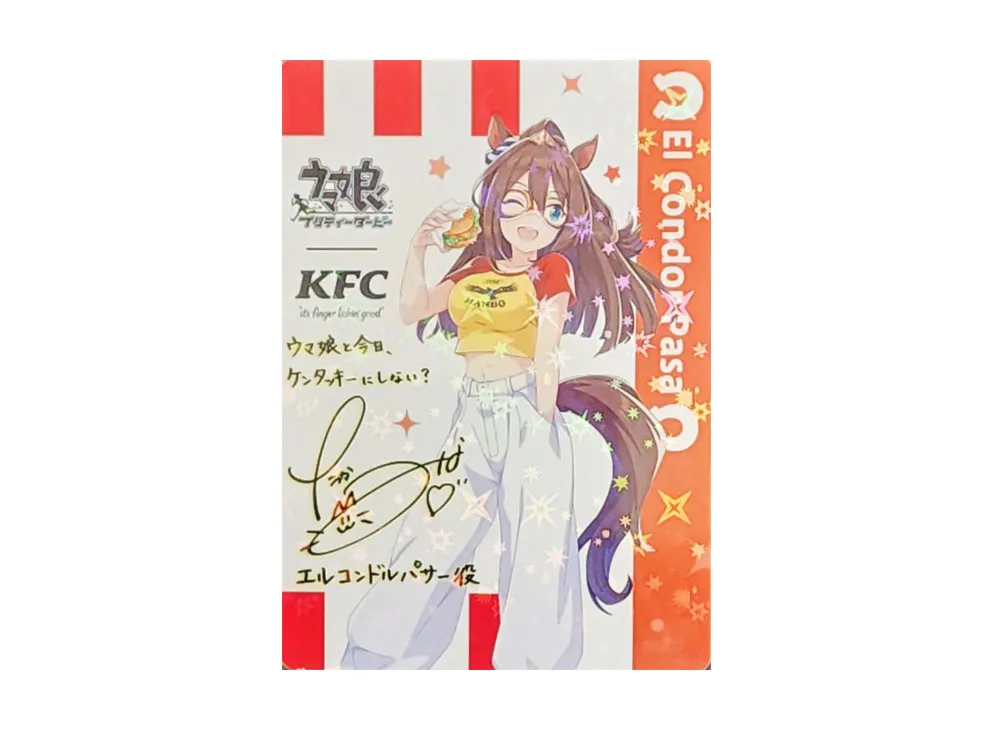 ウマ娘
プリティーダービー
KFC
"it's finger lickin' good"
ウマ娘と今日、
ケンタッキーにしない?
エルコンドルパサー役
HANBO
El Condor Pasa